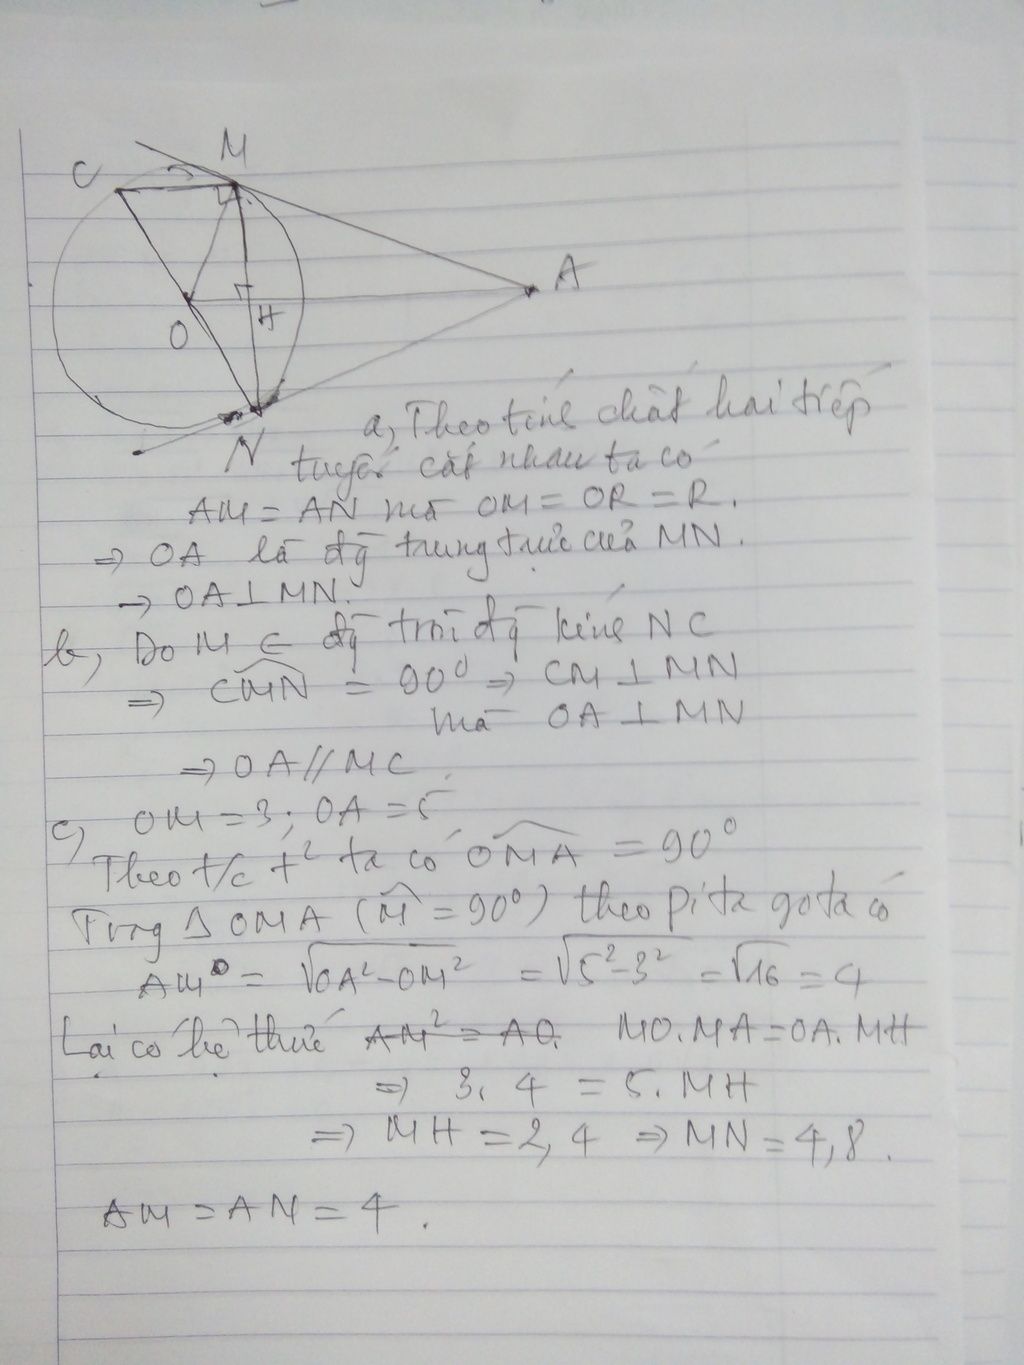 C
M
A
O
H
N
a, Theo tính chất hai tiếp
tuyến cắt nhau ta có
AM = AN mà OM = OR = R.
=> OA là đg trung trực của MN.
-> OA ⊥ MN.
b, Do M ∈ đg tròn đg kính NC
=> \widehat{CMN} = 90⁰ => CM ⊥ MN
mà OA ⊥ MN
=> OA // MC.
c, OM = 3; OA = 5
Theo t/c t² ta có \widehat{OMA} = 90⁰
Trong Δ OMA (\widehat{M} = 90⁰) theo pi ta go ta có
AM = √(OA² - OM²) = √(5² - 3²) = √16 = 4
Lại có hệ thức AM² = AO. MO.MA = OA.MH
=> 3.4 = 5.MH
=> MH = 2,4 => MN = 4,8.
AM = AN = 4.